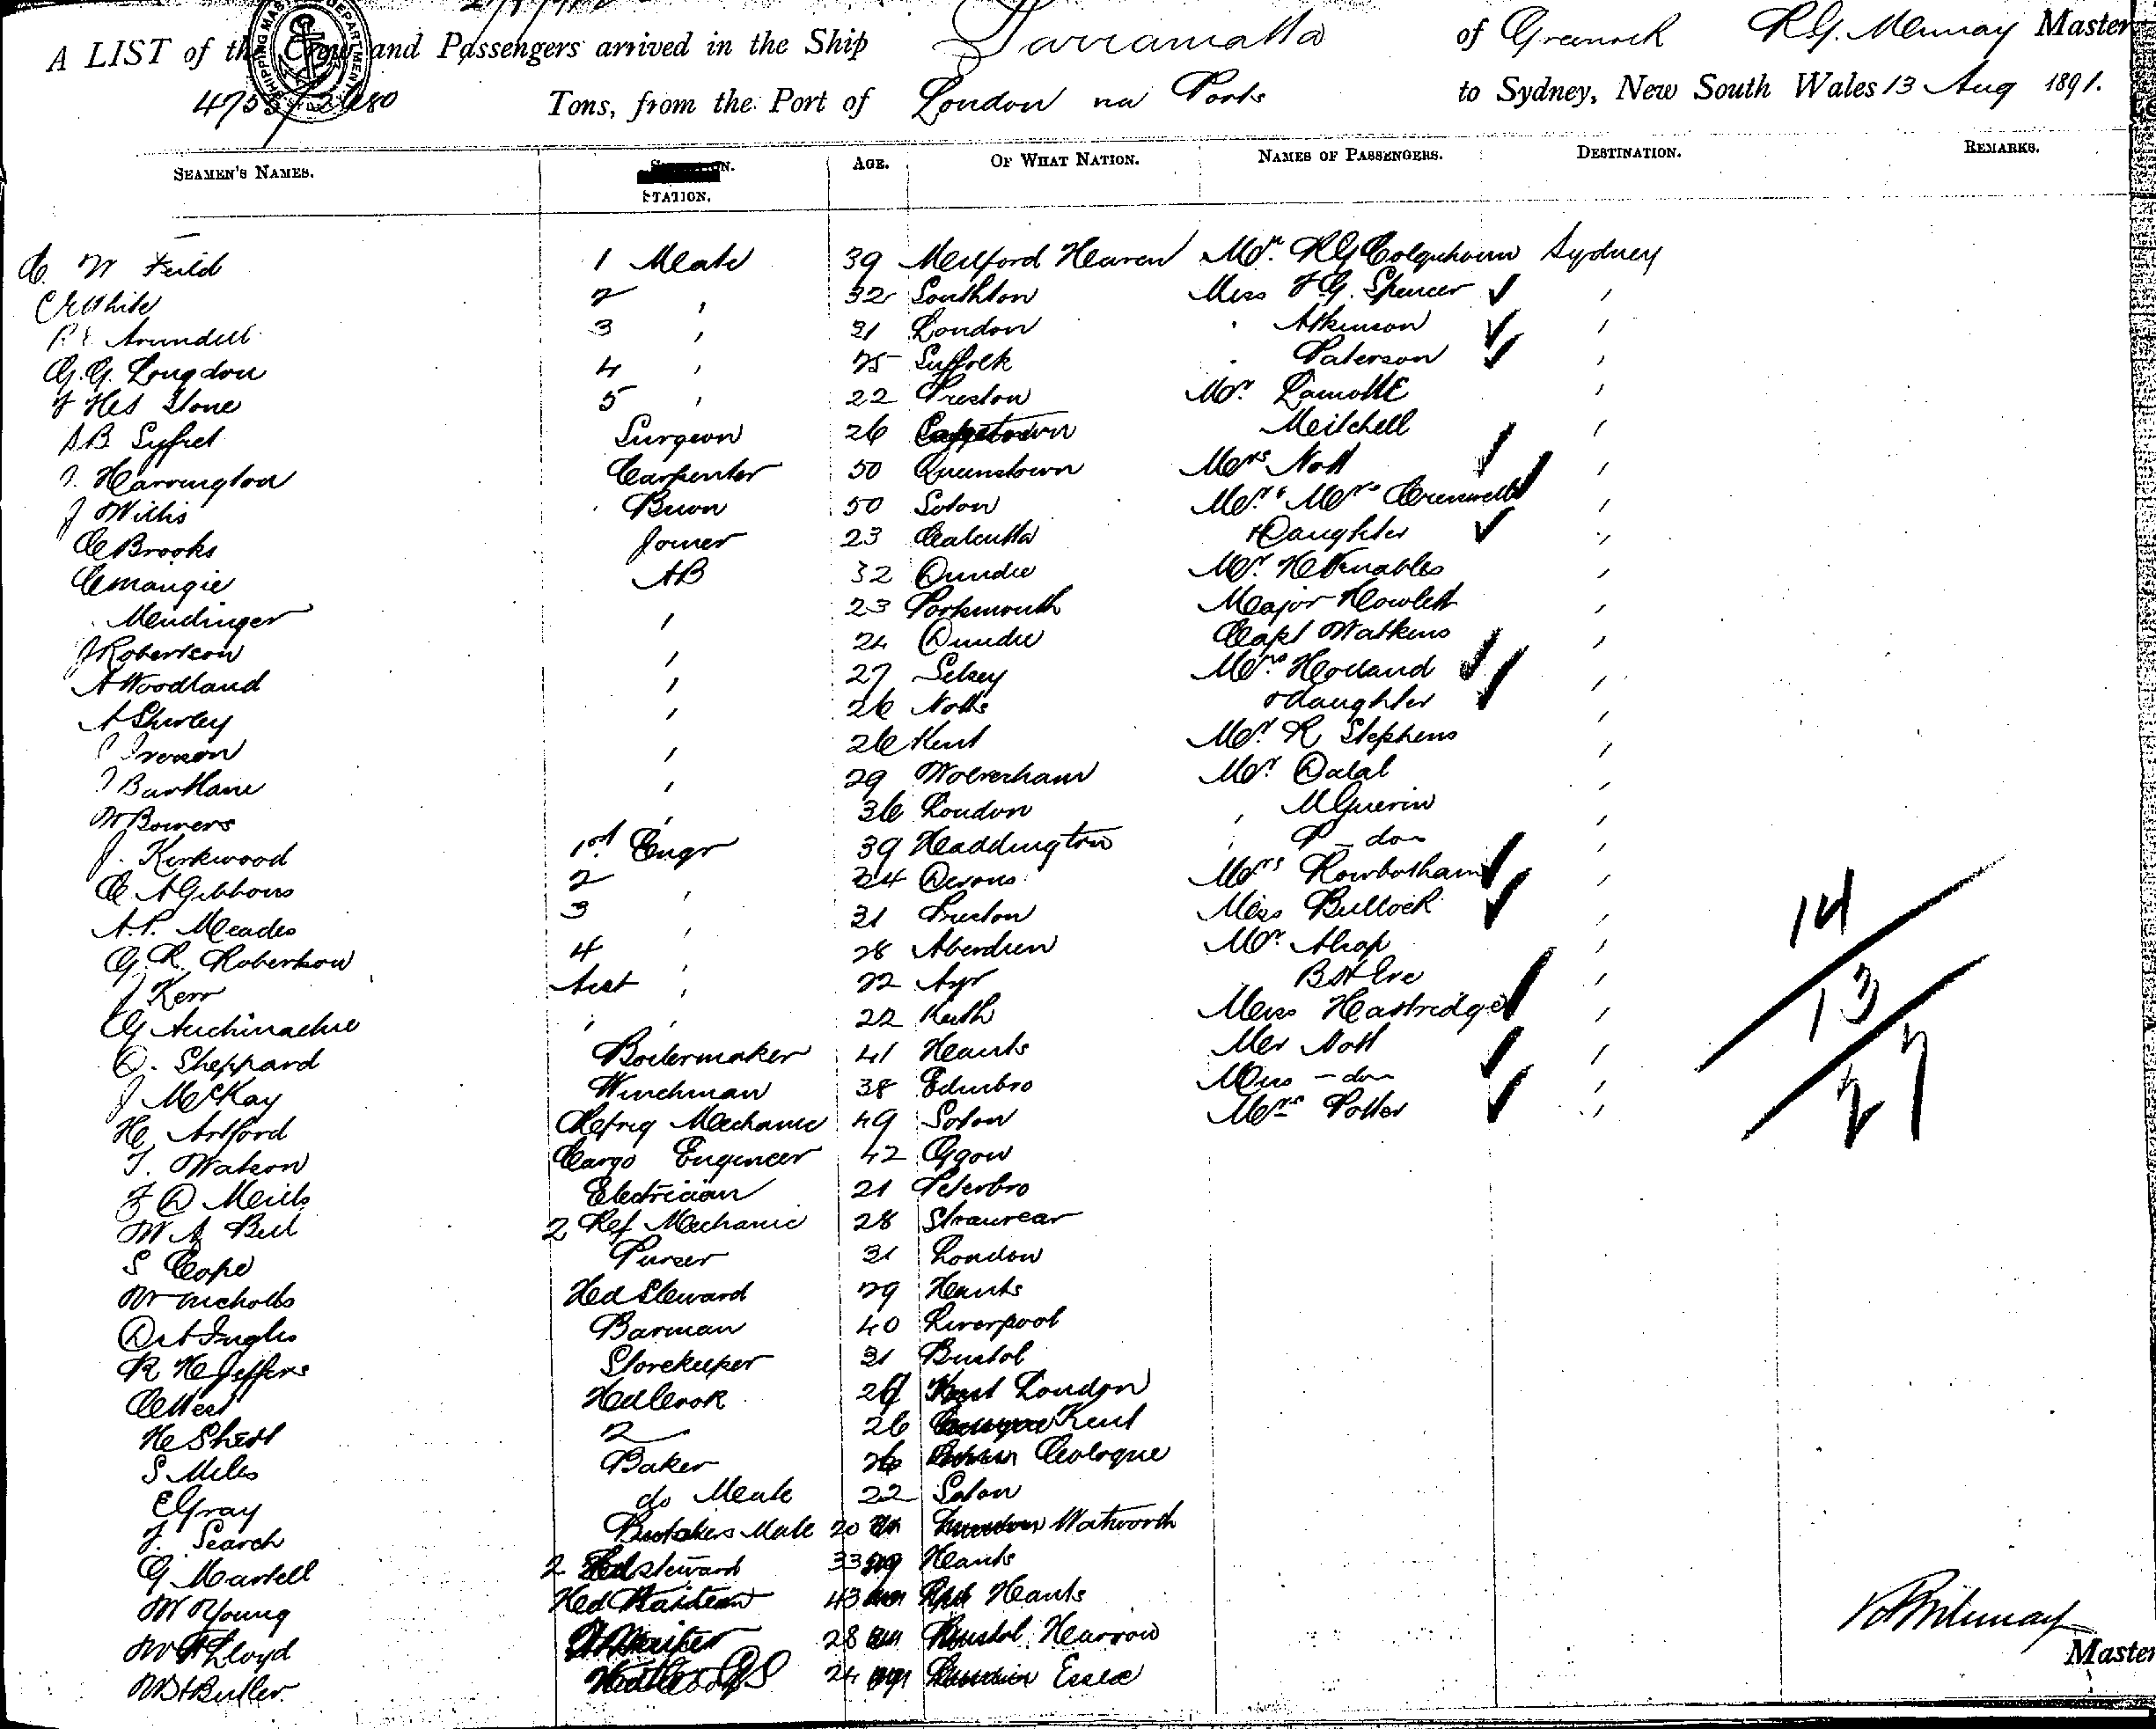 A LIST of the Crew and Passengers arrived in the Ship Parramatta of Greenock R G. Murray Master
Tons, from the Port of London via Ports to Sydney, New South Wales 13 Aug 1891.
SEAMEN'S NAMES. STATION. AGE. OF WHAT NATION. NAMES OF PASSENGERS. DESTINATION. REMARKS.
C. W Feild 1 Mate 39 Milford Haven Mr. R G Colquhoun Sydney
C White 2 " 32 Southton Miss F G. Spencer ✓ "
Arundell 3 " 31 London " Atkinson ✓ "
G. G. Longdon 4 " 25 Suffolk " Paterson ✓ "
Stone 5 " 22 Preston Mr. Lamotte "
Syfret Surgeon 26 Capetown Mitchell "
Harrington Carpenter 50 Queenstown Mrs Nott ✓ "
J Willis Bswn 50 Soton Mr. & Mrs ✓ "
C Brooks Joiner 23 Calcutta + Daughter ✓ "
C Mangie AB 32 Dundee Mr. H Venables "
Mendinger " 23 Portsmouth Major Howlett "
J Robertson " 24 Dundee Capt Watkins "
A Woodland " 27 Selsey Mrs Holland ✓ "
A Shirley " 26 Notts + daughter ✓ "
" 26 Kent Mr. R Stephens "
" 29 Mr. Dalal "
W Bowers " 36 London " M Guerin "
J. Kirkwood 1st Engr 39 Haddington " P - do - "
C A Gibbons 2 " 34 Devons. Mrs Rowbotham ✓ "
A. P. Meades 3 " 31 Preston Miss Bullock ✓ "
G. R. Robertson 4 " 28 Aberdeen Mr. Alsop "
J Kerr Asst " 22 Ayr "
G Auchinachie " " 22 Keith Miss Hastridge ✓ "
D. Sheppard Boilermaker 41 Hants Nott ✓ "
J McKay Winchman 38 Edinbro Miss - do - ✓ "
H, Artford Refrig Mechanic 49 Soton Mrs Potter ✓ "
T. Watson Cargo Engineer 42 Ggow
F D Mills Electrician 21 Peterbro
W A Bell 2 Ref Mechanic 28 Stranrear
S Cope Purser 31 London
W Nicholls Hed Steward 29 Hants
Inglis Barman 40 Liverpool
R H Jeffers Storekeeper 31 Bristol
C West Hed Cook 29 London
H Short 2 26 Kent
S Miles Baker 26 Cologne
E Gray do Mate 22 Soton
F. Search Butchers Mate 20 Walworth
G Martell 2 Hed steward 33 Hants
W Young Hed 43 Hants
W H Lloyd 28 Harrow
W H Butler 24 Essex
14
13
27
Master